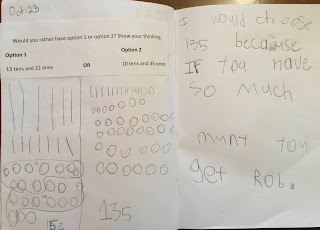 Oct. 23
Would you rather have option 1 or option 2? Show your thinking.
Option 1
Option 2
13 tens and 22 ones
OR
10 tens and 35 ones
152
135
I would choose
135 because
If you have
so much
muny you
get Rob.